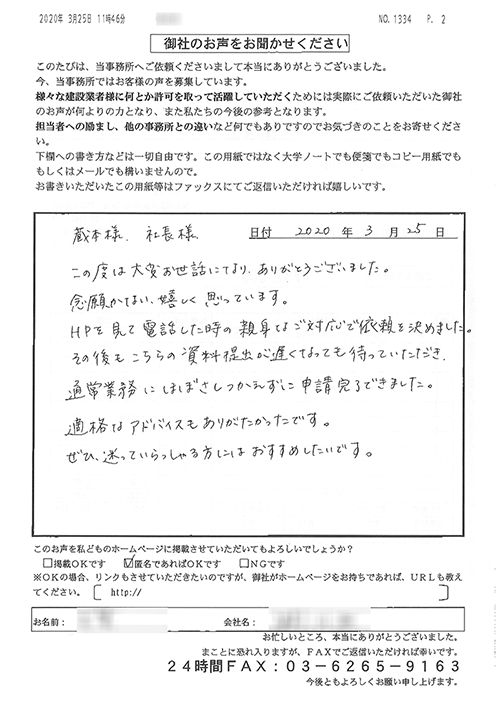 2020年 3月25日 11時46分 NO. 1334 P. 2
御社のお声をお聞かせください
このたびは、当事務所へご依頼くださいまして本当にありがとうございました。
今、当事務所ではお客様の声を募集しています。
様々な建設業者様に何とか許可を取って活躍していただくためには実際にご依頼いただいた御社
のお声が何よりの力となり、また私たちの今後の参考となります。
担当者への励まし、他の事務所との違いなど何でもありですのでお気づきのことをお寄せくださ
い。
下欄への書き方などは一切自由です。この用紙ではなく大学ノートでも便箋でもコピー用紙でも
もしくはメールでも構いませんので。
お書きいただいたこの用紙等はファックスにてご返信いただければ嬉しいです。
蔵本様、社長様 日付 2020 年 3 月 25 日
この度は大変お世話になり、ありがとうございました。
念願かない、嬉しく思っています。
HPを見て電話した時の親身なご対応で依頼を決めました。
その後もこちらの資料提出が遅くなっても待っていただき、
通常業務にほぼさしつかえずに申請完了できました。
適格なアドバイスもありがたかったです。
ぜひ、迷っていらっしゃる方にはおすすめしたいです。
このお声を私どものホームページに掲載させていただいてもよろしいでしょうか?
□掲載OKです ☑匿名であればOKです □NGです
※OKの場合、リンクもさせていただきたいのですが、御社がホームページをお持ちであれば、URLも教え
てください。〔 http:// 〕
お名前: 会社名:
お忙しいところ、本当にありがとうございました。
まことに恐れ入りますが、FAXでご返信いただければ幸いです。
24時間FAX:03-6265-9163
今後ともよろしくお願い申し上げます。